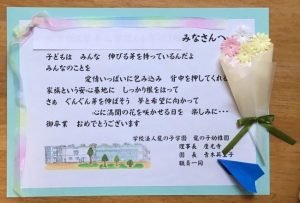 みなさんへ
子どもは みんな 伸びる芽を持っているんだよ
みんなのことを
愛情いっぱいに包み込み 背中を押してくれる
家族という安心基地に しっかり根をはって
さぁ ぐんぐん芽を伸ばそう 夢と希望に向かって
心に満開の花を咲かせる日を 楽しみに･･･
御卒業 おめでとうございます
学校法人龍の子学園 龍の子幼稚園
理事長
園 長 青木
職員一同